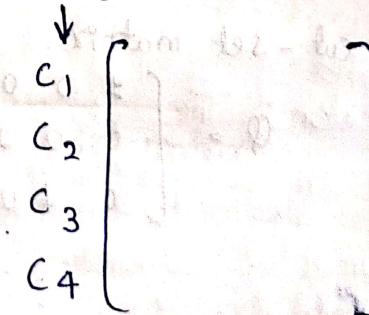 ↓
C1
C2
C3
C4